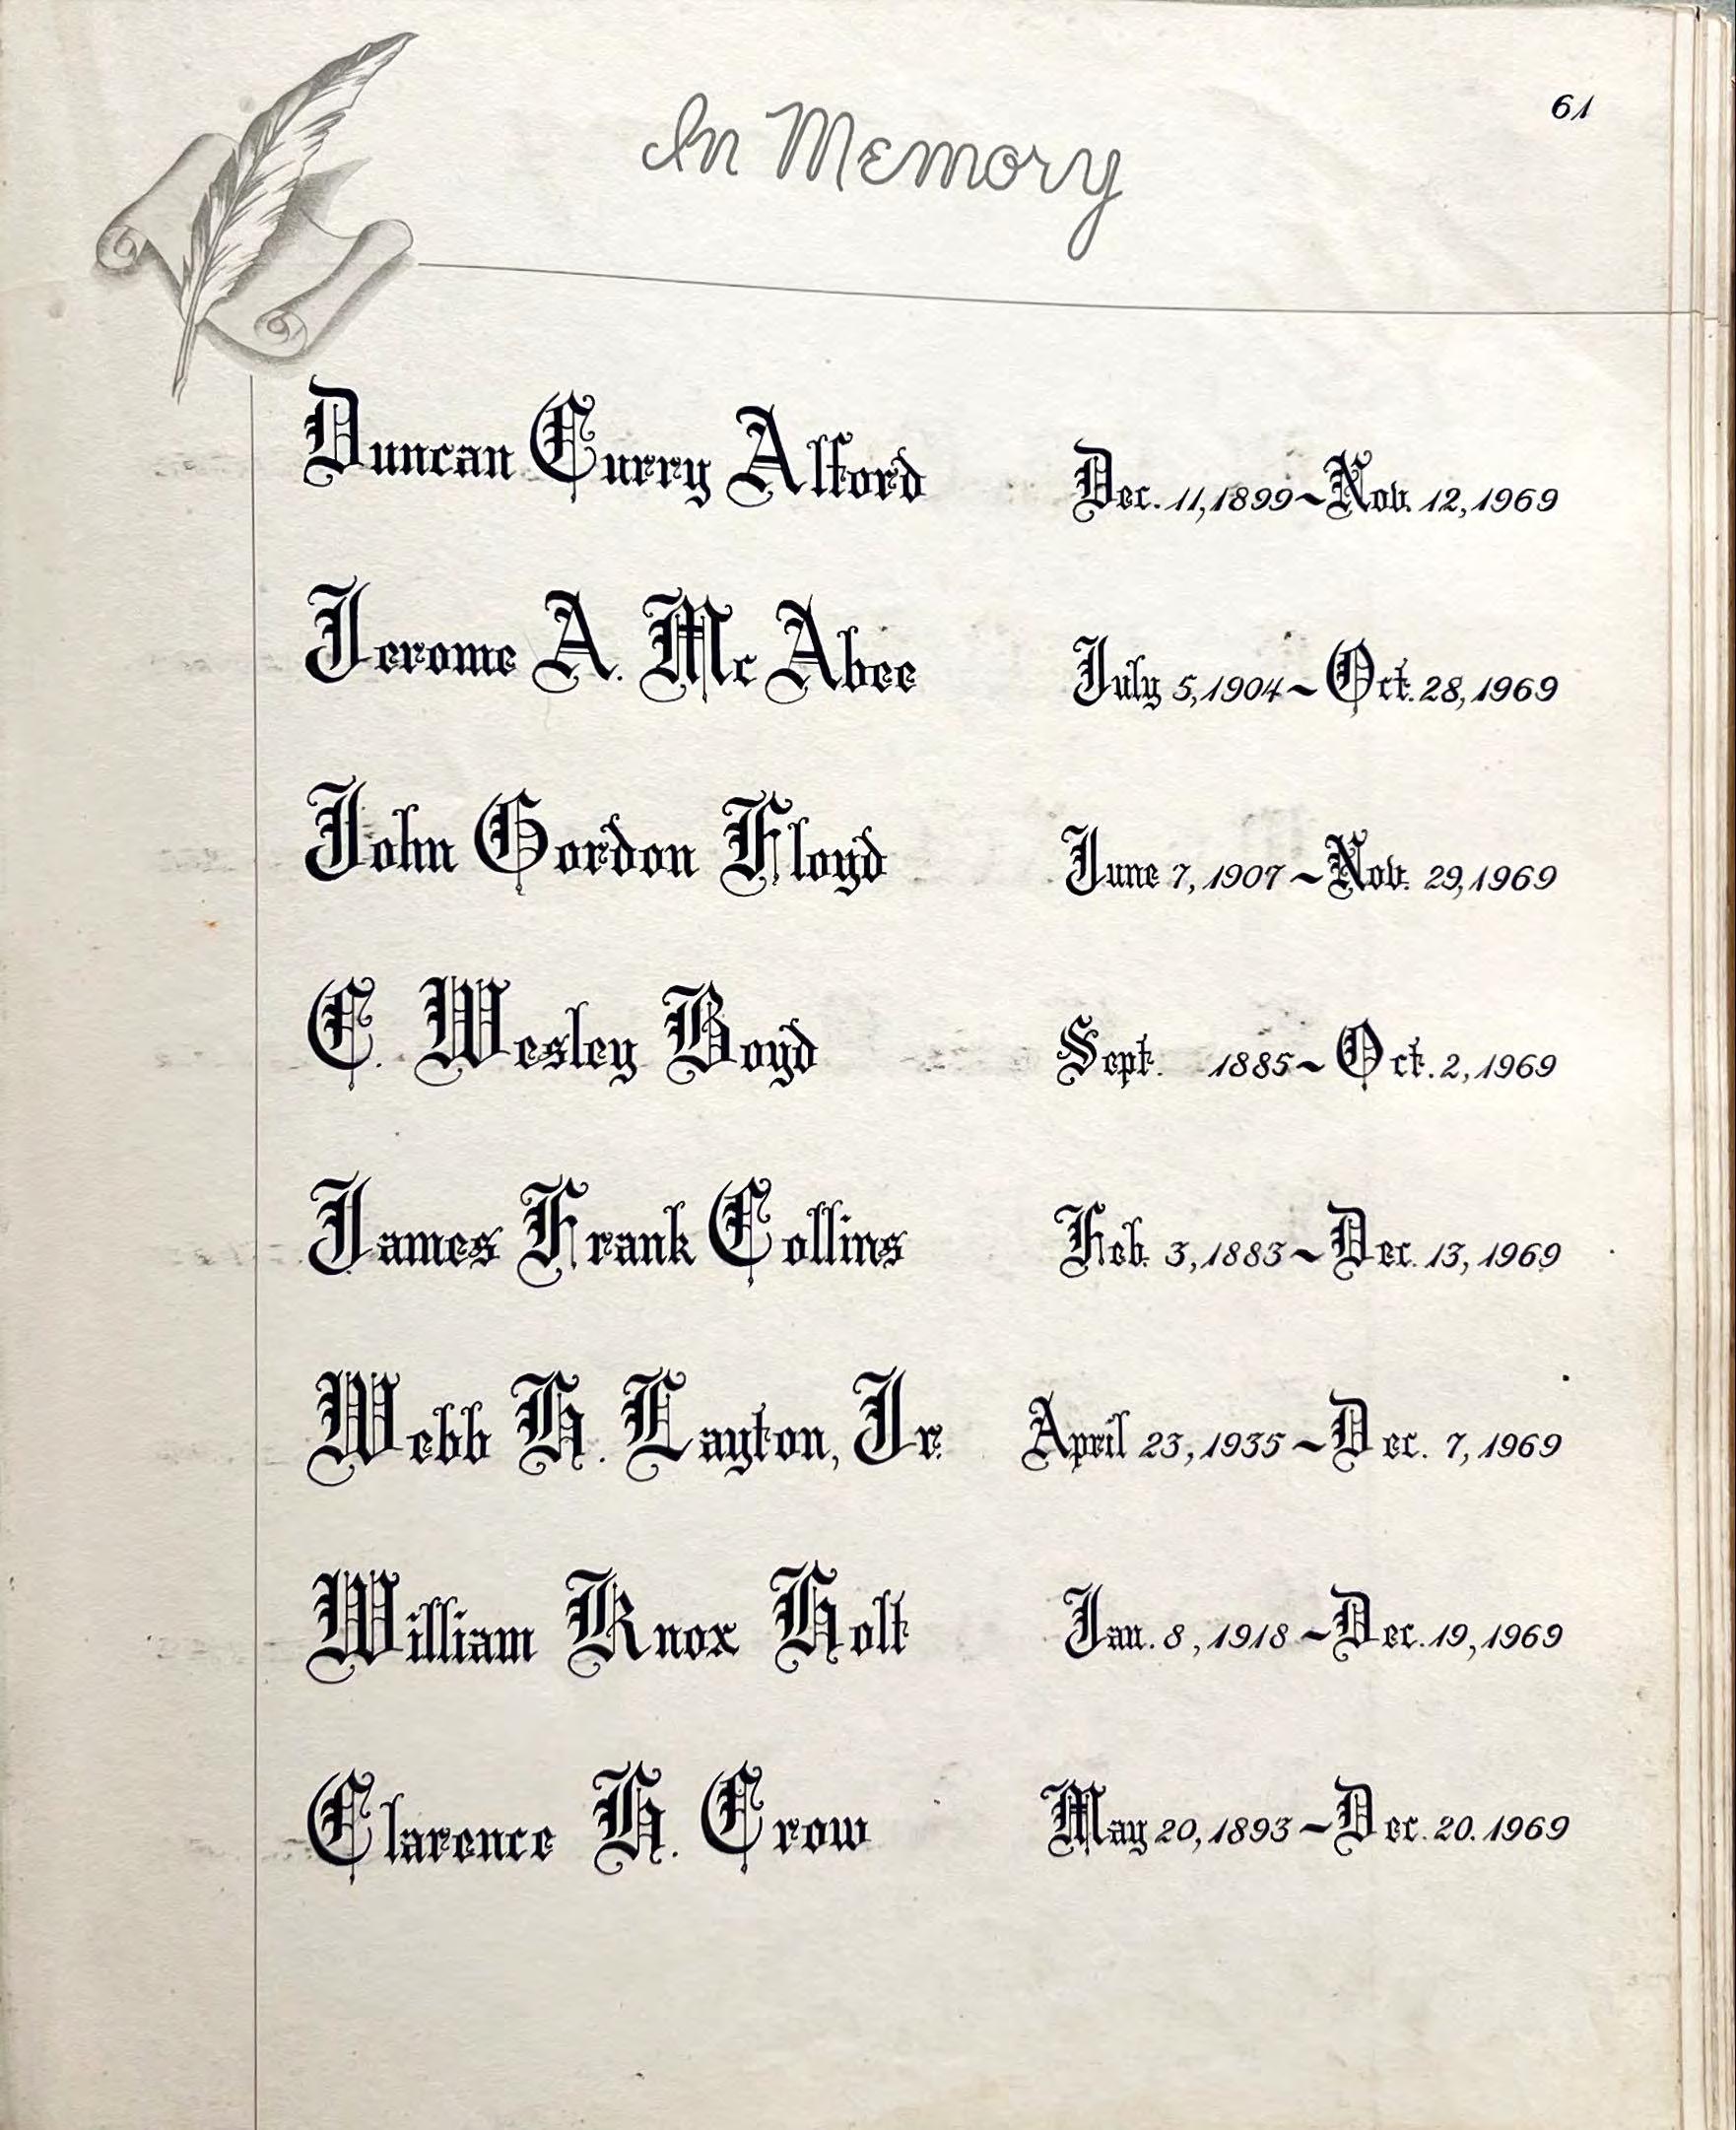 61
In Memory
Duncan Curry Alford Dec. 11, 1899 ~ Nov. 12, 1969
Jerome A. McAbee July 5, 1904 ~ Oct. 28, 1969
John Gordon Floyd June 7, 1907 ~ Nov. 29, 1969
C. Wesley Boyd Sept. 1885 ~ Oct. 2, 1969
James Frank Collins Feb. 3, 1883 ~ Dec. 13, 1969
Webb H. Layton, Jr. April 23, 1935 ~ Dec. 7, 1969
William Knox Holt Jan. 8, 1918 ~ Dec. 19, 1969
Clarence H. Crow May 20, 1893 ~ Dec. 20. 1969